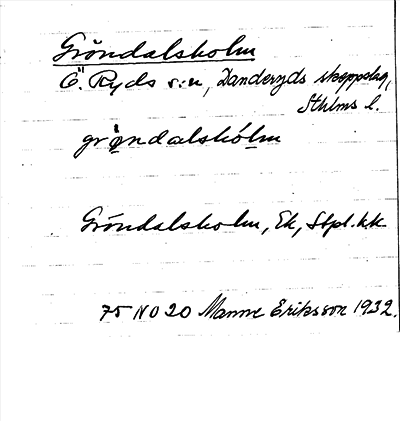 Gröndalsholm
Ö. Ryds s:n, Danderyds skeppslag,
Sthlms l.
gröndalshólm
Gröndalsholm, Ek, Stpl. kk
75 NO 20 Manne Eriksson 1932.